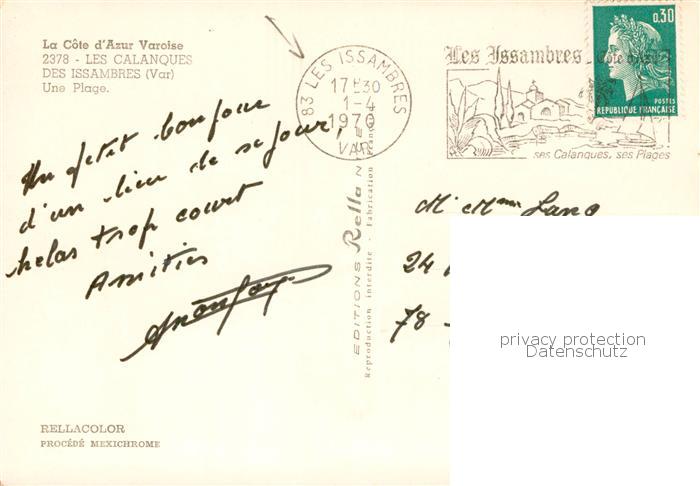 La Côte d'Azur Varoise
2378 - LES CALANQUES
DES ISSAMBRES (Var)
Une Plage.
83 LES ISSAMBRES
17H30
1-4
1970
VAR
Les Issambres - Côte d'Azur
ses Calanques, ses Plages
0,30
POSTES
REPUBLIQUE FRANÇAISE
Un petit bonjour
d'un lieu de sejour,
helas trop court
Amitiés
EDITIONS Rella N
Reproduction interdite - Fabrication Française
M. Mme Lang
24
78 -
privacy protection
Datenschutz
RELLACOLOR
PROCÉDÉ MEXICHROME